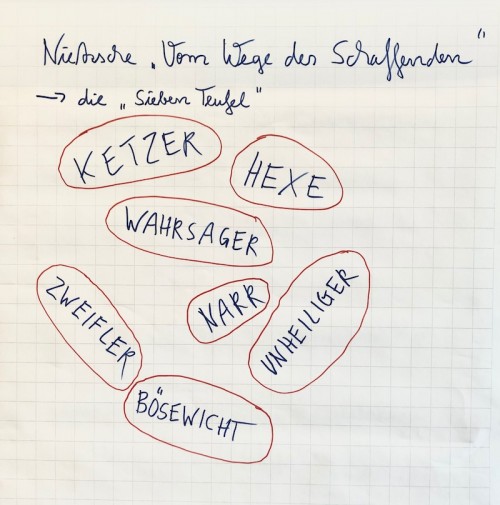 Nietzsche „Vom Wege des Schaffenden"
→ die „Sieben Teufel"
KETZER
HEXE
WAHRSAGER
ZWEIFLER
NARR
UNHEILIGER
BÖSEWICHT